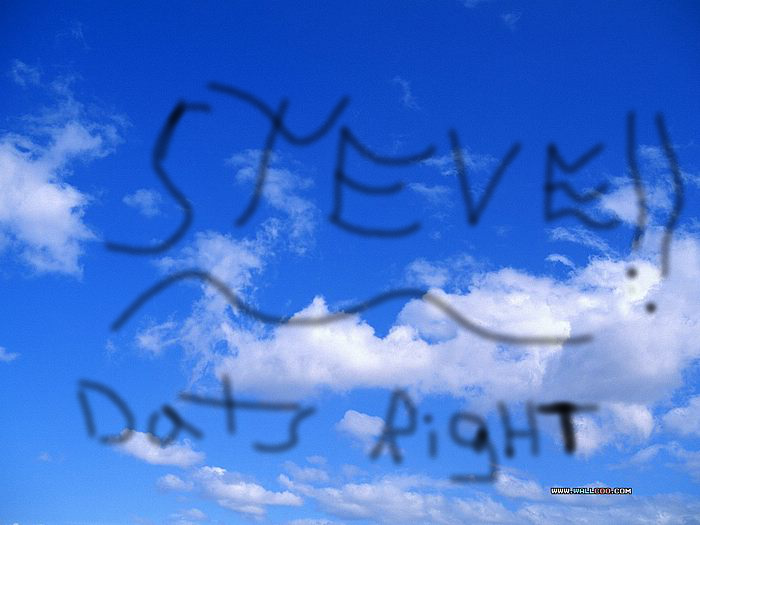 STEVE!!
Dats RigHT
WWW.WALLCOO.COM